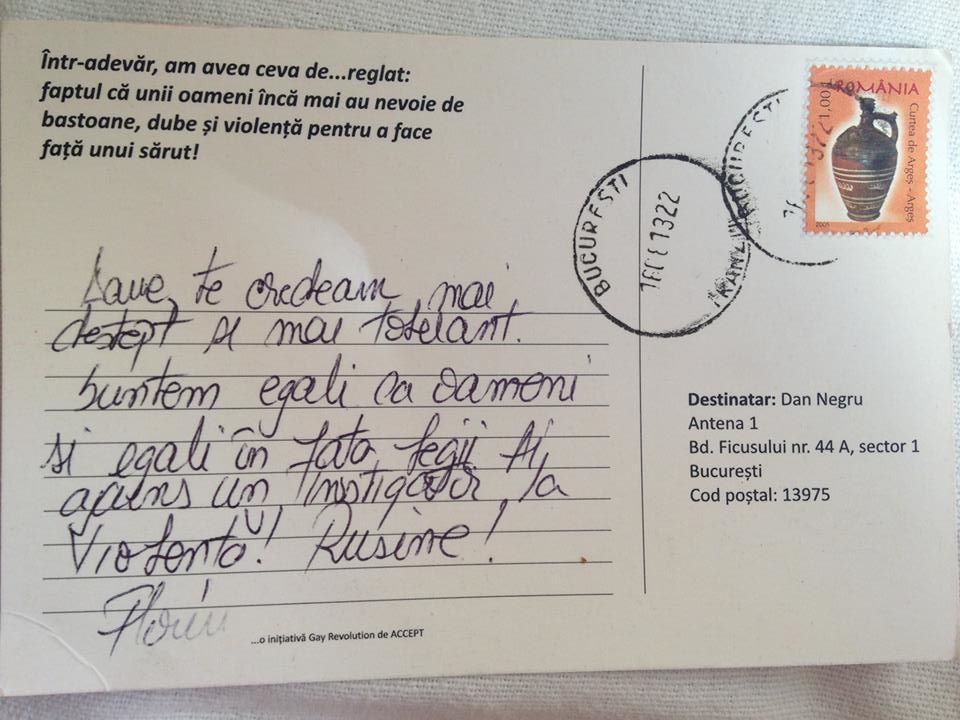 Într-adevăr, am avea ceva de...reglat:
faptul că unii oameni încă mai au nevoie de
bastoane, dube și violență pentru a face
față unui sărut!
te credeam mai
destept si mai tolerant.
Suntem egali ca oameni
si egali în fata legii Ai
ajuns un instigator la
Violentă! Rusine!
Florin
...o inițiativă Gay Revolution de ACCEPT
ROMÂNIA
1,00
Curtea de Argeș - Argeș
2005
BUCUREȘTI
1322
BUCUREȘTI
Destinatar: Dan Negru
Antena 1
Bd. Ficusului nr. 44 A, sector 1
București
Cod poștal: 13975